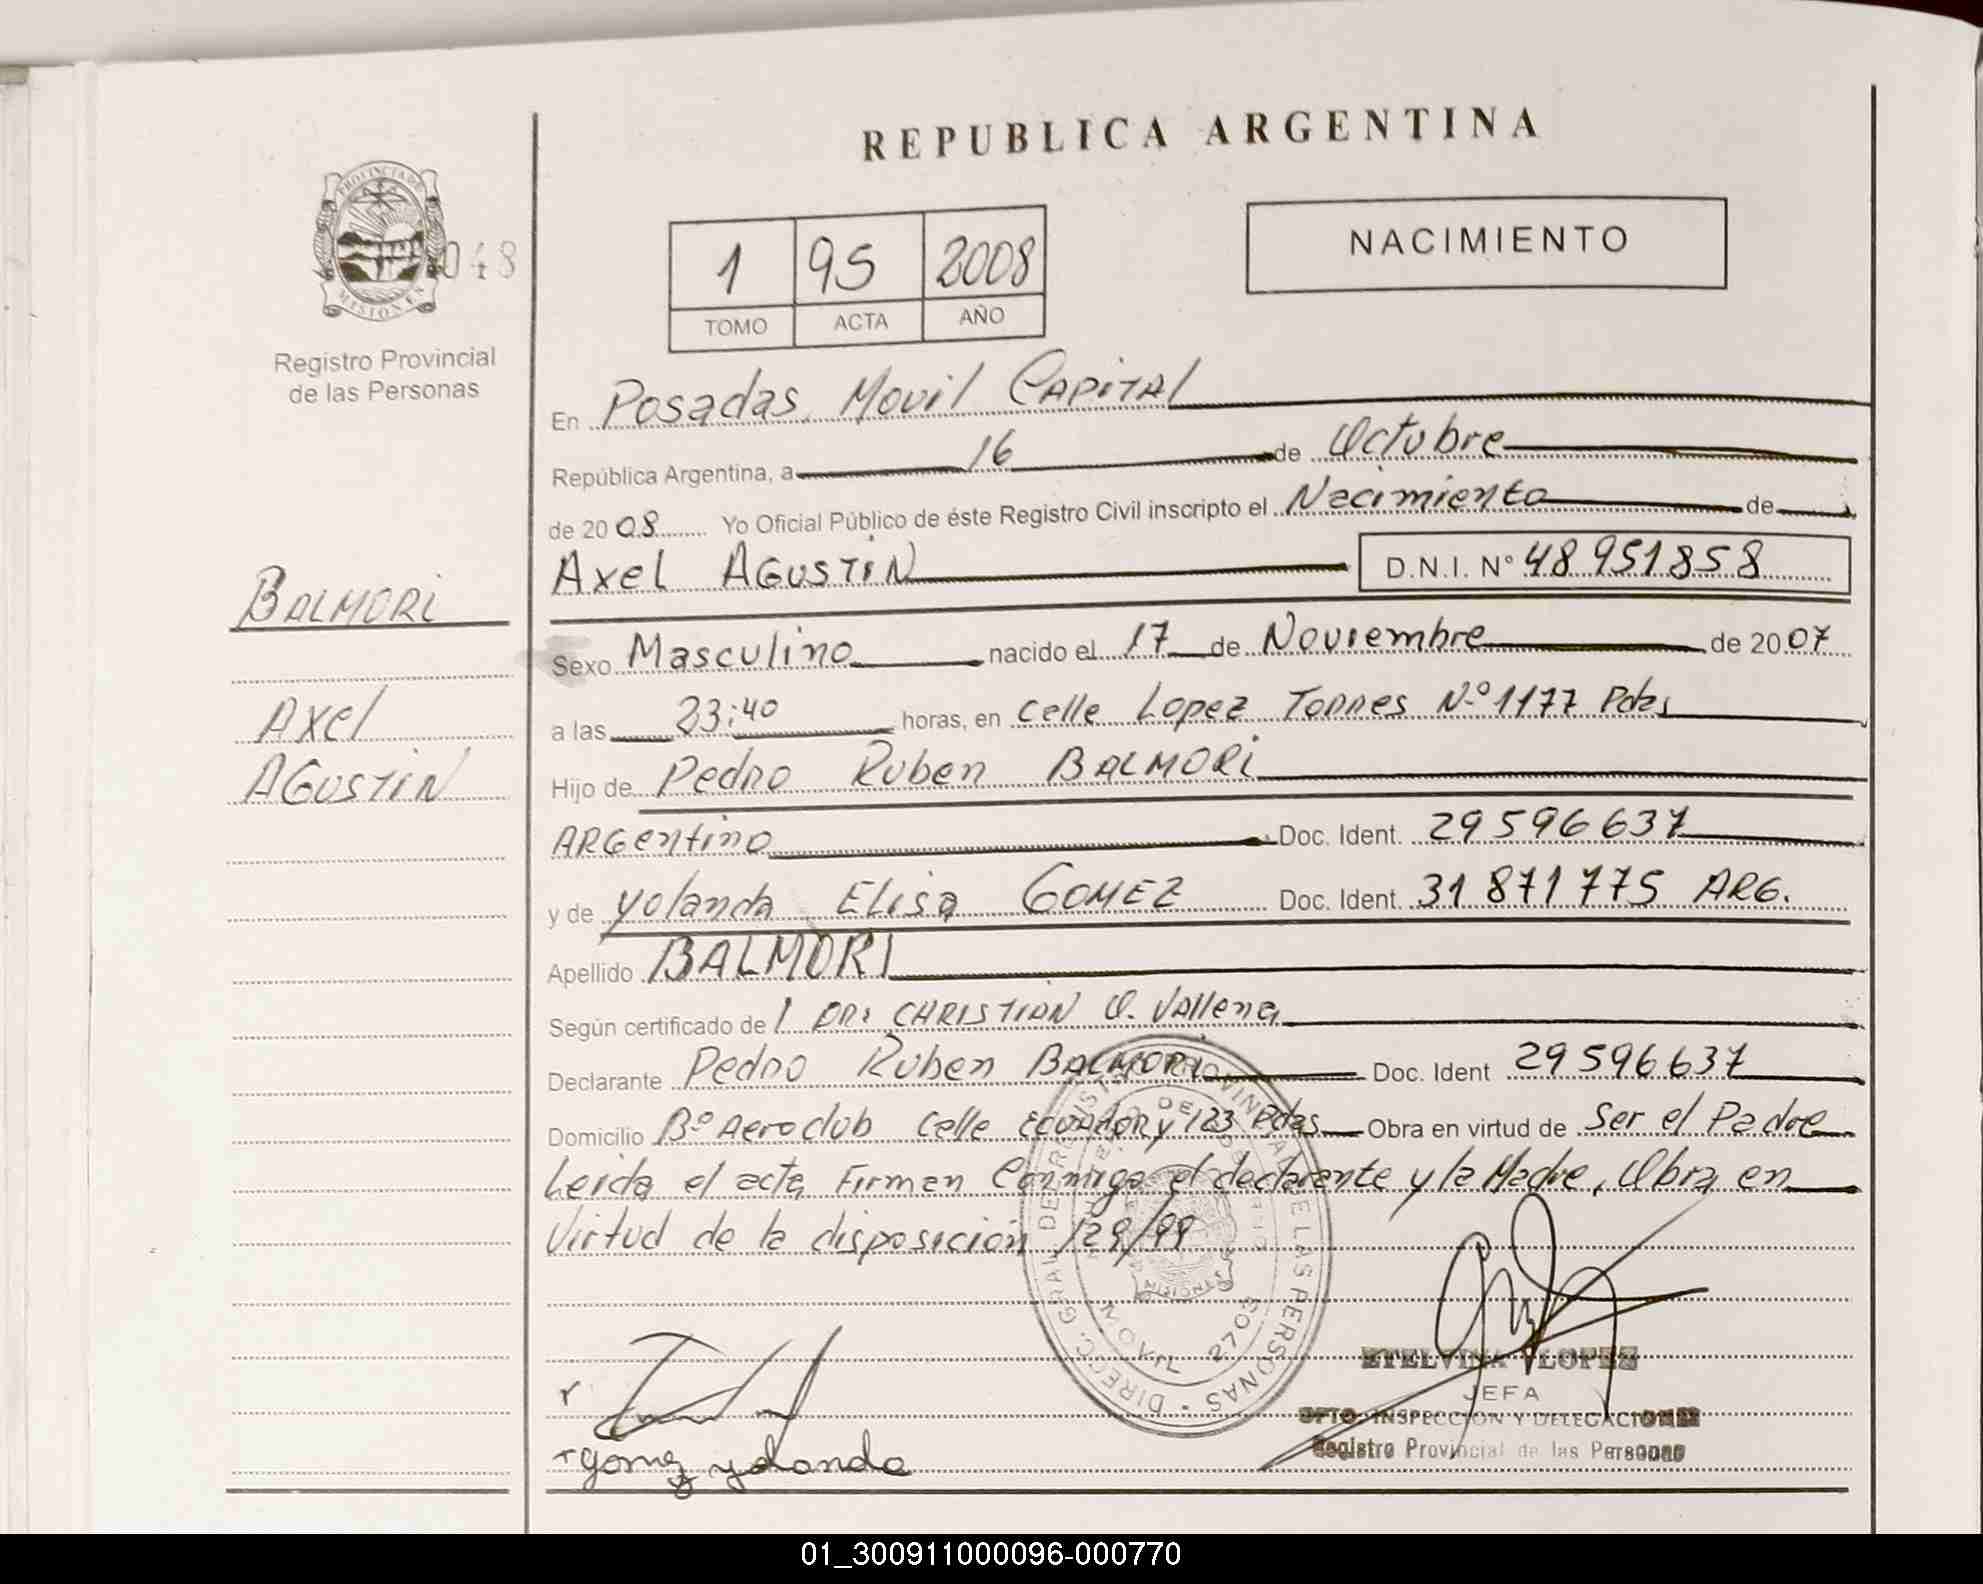 REPUBLICA ARGENTINA
PROVINCIA DE
MISIONES
048
Registro Provincial
de las Personas
1 95 2008
TOMO ACTA AÑO
NACIMIENTO
En Posadas Movil CAPITAL
República Argentina, a 16 de Octubre
de 2008 Yo Oficial Público de éste Registro Civil inscripto el Nacimiento de
Axel AGUSTIN D.N.I. Nº 48951858
BALMORI
Axel
AGUSTIN
Sexo Masculino nacido el 17 de Noviembre de 2007
a las 23:40 horas, en calle Lopez Torres Nº 1177 Pdas
Hijo de Pedro Ruben BALMORI
ARGentino Doc. Ident. 29596637
y de Yolanda ELisa GOMEZ Doc. Ident. 31871775 ARG.
Apellido BALMORI
Según certificado de DR: CHRISTIAN O. Vallena
Declarante Pedro Ruben BALMORI Doc. Ident 29596637
Domicilio Bº Aeroclub calle ECUADOR y 123 Pdas Obra en virtud de Ser el Padre
Leida el acta Firman Conmigo el declarante y la Madre, Obra en
Virtud de la disposición 129/99
DIRECC. GRAL. DE REGISTRO PROVINCIAL DE LAS PERSONAS
MISIONES
MOVIL 2703
ETELVINA LOPEZ
JEFA
DPTO. INSPECCION Y DELEGACIONES
Registro Provincial de las Personas
gomez yolanda
01_300911000096-000770